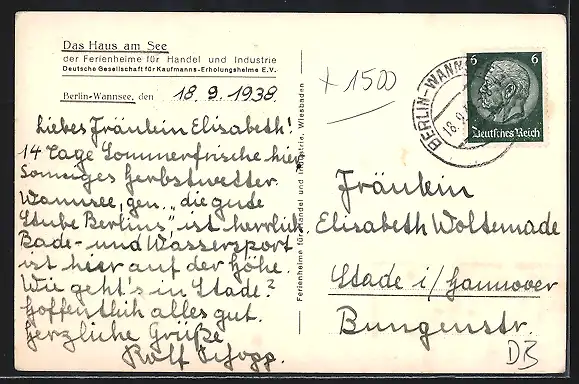 Das Haus am See
der Ferienheime für Handel und Industrie
Deutsche Gesellschaft für Kaufmanns-Erholungsheime E.V.
Berlin-Wannsee, den 18.9.1938
Liebes Fräulein Elisabeth!
14 Tage Sommerfrische hier
Sonniges Herbstwetter
Wannsee, gen. „die gute
Stube Berlins", ist herrlich.
Bade- und Wassersport
ist hier auf der Höhe.
Wie geht's in Stade?
Hoffentlich alles gut.
Herzliche Grüße
Rolf
Ferienheime für Handel und Industrie, Wiesbaden
+ 1500
BERLIN-WANNS
18.9.
6 6
Deutsches Reich
Fräulein
Elisabeth Woltemade
Stade i/Hannover
Bungenstr.
DB